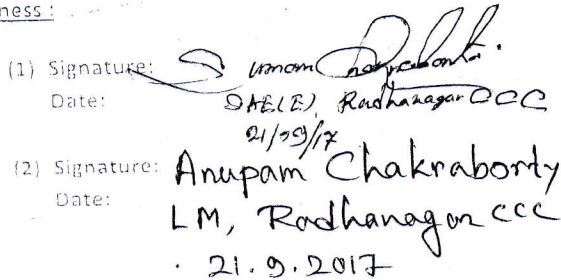 ness :
(1) Signature: Suman Chakraborty.
Date: SAE(E), Radhanagar CCC
21/09/17
(2) Signature: Anupam Chakraborty
Date: LM, Radhanagar CCC
. 21.9.2017